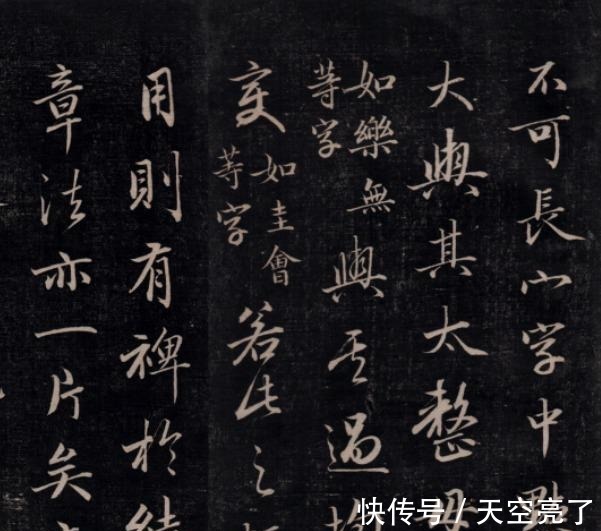 不可長宀字中
大與其太整
如樂無
等字
與其過
如圭會
等字
若此之
用則有裨於結
章法亦一片矣
快传号/天空亮了